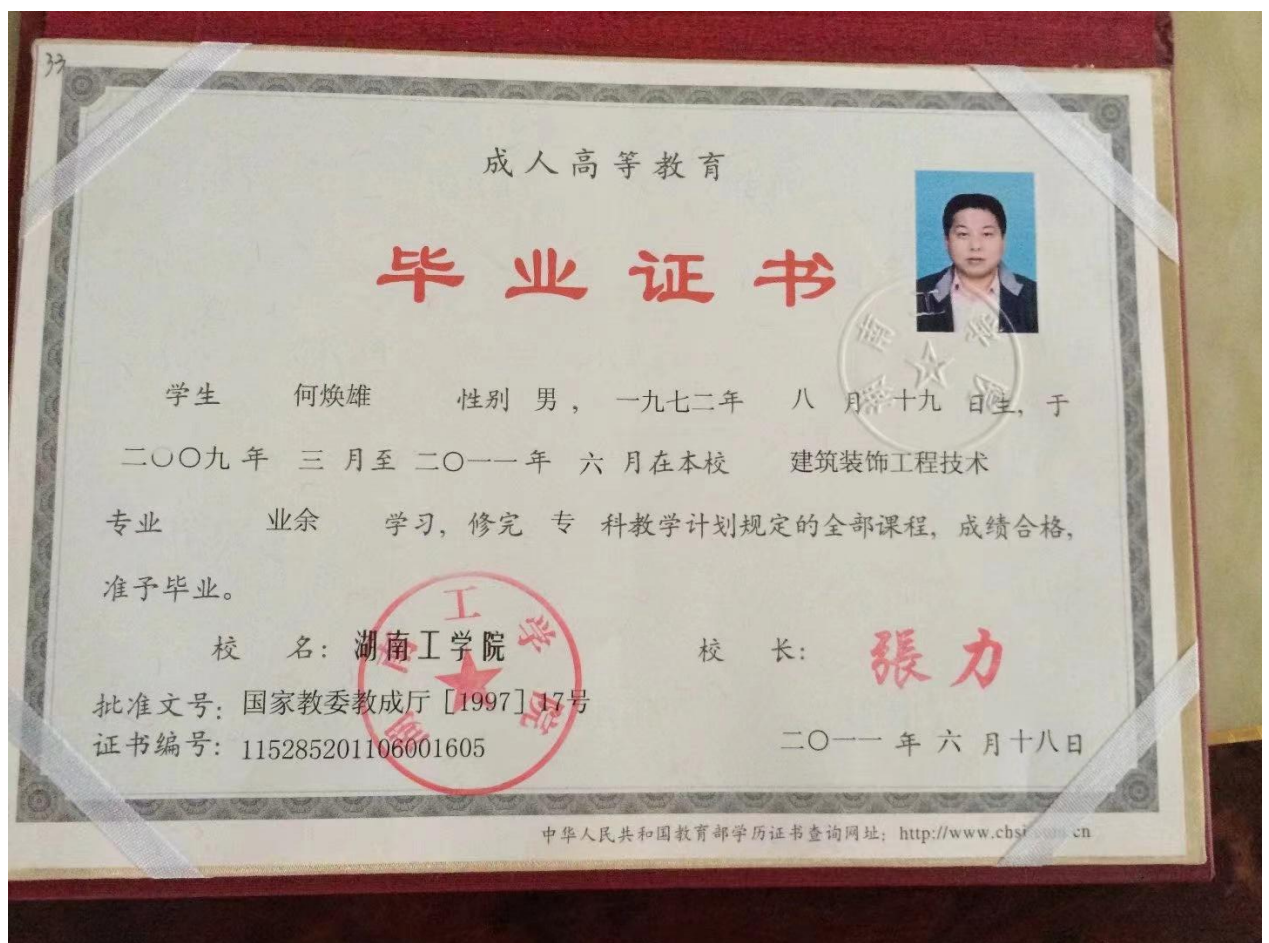 33
成人高等教育
毕业证书
学生 何焕雄 性别 男, 一九七二年 八 月 十九 日生, 于
二〇〇九年 三 月至 二〇一一年 六 月在本校 建筑装饰工程技术
专业 业余 学习, 修完 专 科教学计划规定的全部课程, 成绩合格,
准予毕业。
校 名: 湖南工学院
校 长: 張力
批准文号: 国家教委教成厅[1997]17号
证书编号: 115285201106001605
二〇一一 年 六 月十八日
湖南工学院
湖南工学院
中华人民共和国教育部学历证书查询网址: http://www.chsi cn